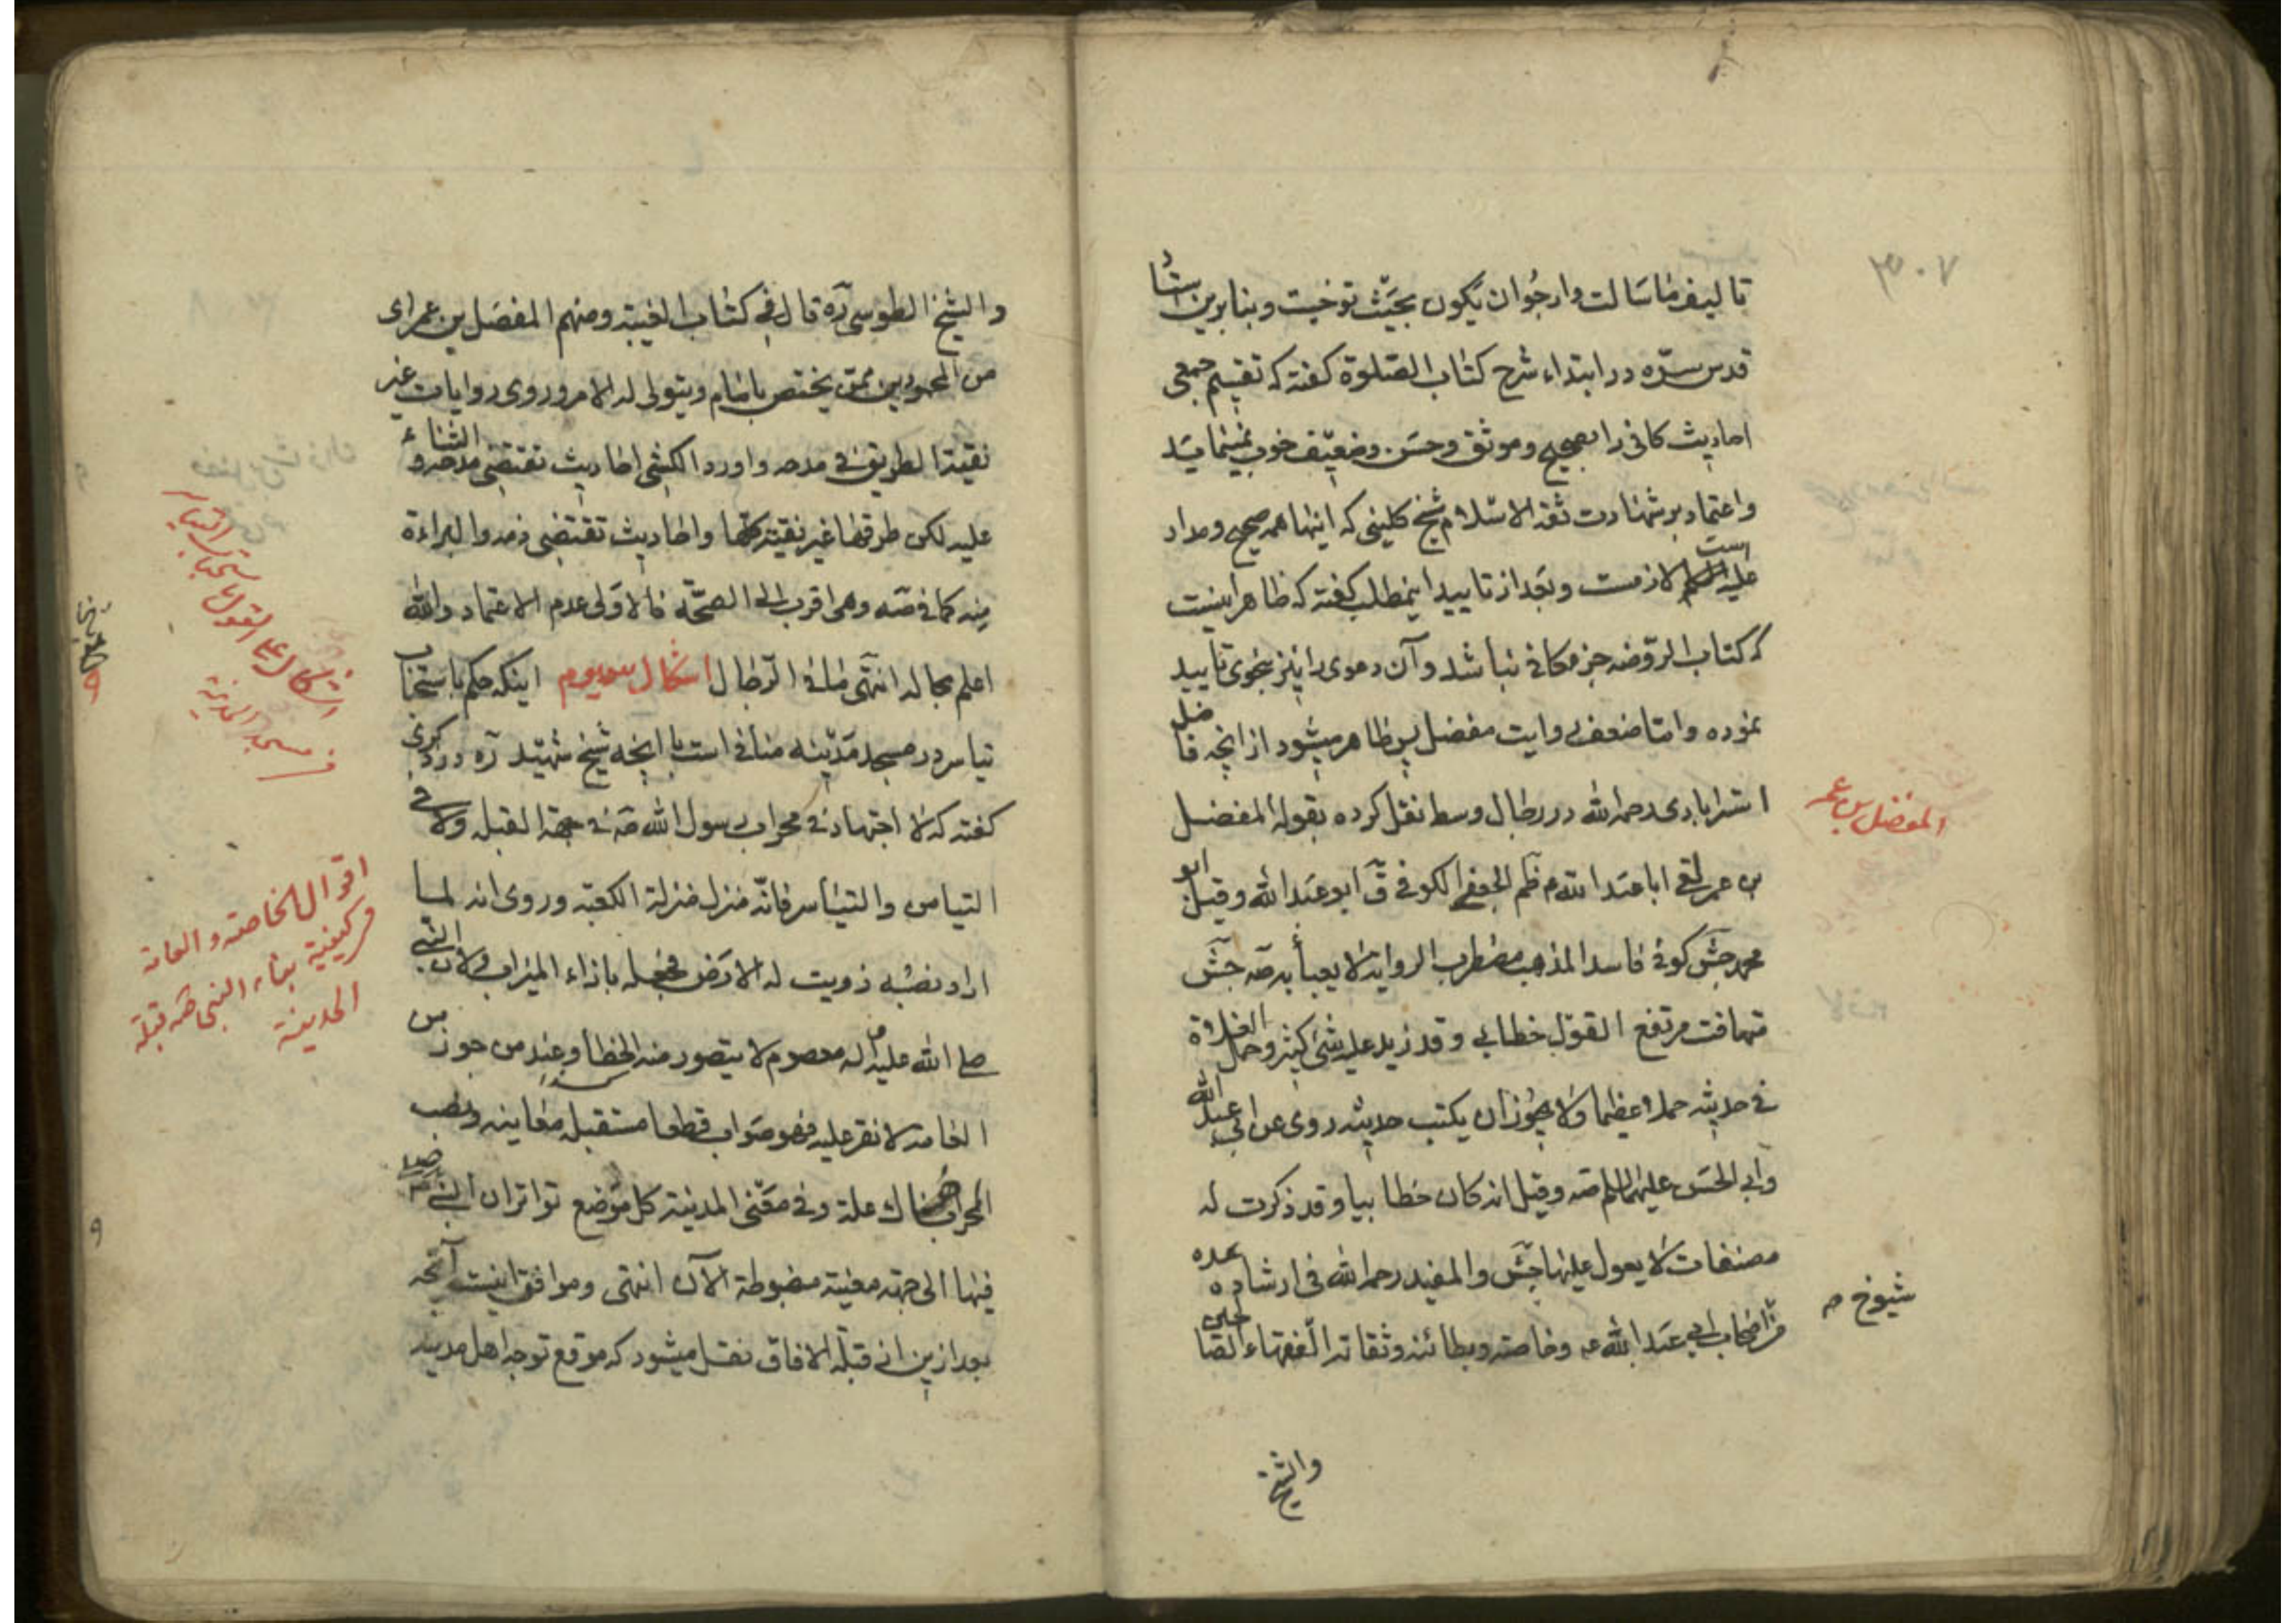 ۳۰۷
تالیف ما سالت وارجوان یکون بحیث توخیت و بنابرین استاد
قدس سره در ابتداء شرح کتاب الصلوة کفته که تقسیم جمعی
احادیث کافی را بصحیح وموثق وحسن وضعیف خوب نمینماید
واعتماد بر شهادت ثقة الاسلام شیخ کلینی که اینها همه صحیح ومدار
علیه است لازمست وبعد از تایید اینمطلب کفته که ظاهر اینست
که کتاب الروضه جزء کافی نباشد وآن دعوی را نیز بنحوی تایید
نموده واما ضعف روایت مفضل پس ظاهر میشود از انچه فاضل
استرابادی رحمه الله در رجال وسط نقل کرده بقوله المفضل
المفضل بن عمر
بن عمر لقی ابا عبد الله م ظم الجعفی الکوفی ق ابو عبد الله وقیل ابو
محمد جش کوفی فاسد المذهب مضطرب الروایة لا یعبأ به صه جش
متهافت مرتفع القول خطابی وقد زید علیه شئ کثیر وحمل الغلاة
فی حدیثه حملا عظیما ولا یجوز ان یکتب حدیثه روی عن ابی عبد الله
وابی الحسن علیهما السلم صه وقیل انه کان خطابیا وقد ذکرت له
مصنفات لا یعول علیها جش والمفید رحمه الله فی ارشاده عده
شیوخ م
من اصحاب ابی عبد الله ع وخاصته وبطانته وثقاته الفقهاء الصالحین
والشیخ
والشیخ الطوسی ره قال فی کتاب الغیبة ومنهم المفضل بن عمر ای
من المحمودین ممن یختص بامام ویتولی له الامر وروی روایات غیر
نقیة الطریق فی مدحه واورد الکشی احادیث تقتضی مدحه والثناء
علیه لکن طرقها غیر نقیة کلها واحادیث تقتضی ذمه والبراءة
منه کما فی صه وهی اقرب الی الصحة فالاولی عدم الاعتماد والله
اعلم بحاله انتهی ما فی الرجال اشکال سیوم اینکه حکم باستحباب
اشکال علی القول باستحباب التیاسر
فی مسجد المدینة
تیاسر در مسجد مدینه منافی است با انچه شیخ شهید ره در ذکری
کفته که لا اجتهاد فی محراب رسول الله ص فی جهة القبلة ولا فی
التیامن والتیاسر فانه منزل منزلة الکعبة وروی انه لما
اقوال الخاصة والعامة
فی کیفیة بناء النبی ص قبلة
المدینة
اراد نصبه زویت له الارض فجعله بازاء المیزاب ولان النبی
صلی الله علیه واله معصوم لا یتصور منه الخطأ وعند من جوزه من
العامة لا نقر علیه فهو صواب قطعا مستقبله معاینة ونصب
المحراب هناک علة وفی معنی المدینة کل موضع تواتر ان النبی صلی
فیها الی جهة معینة مضبوطة الآن انتهی وموافق اینست آنچه
بعد ازین از قبلة الافاق نقل میشود که موقع توجه اهل مدینه